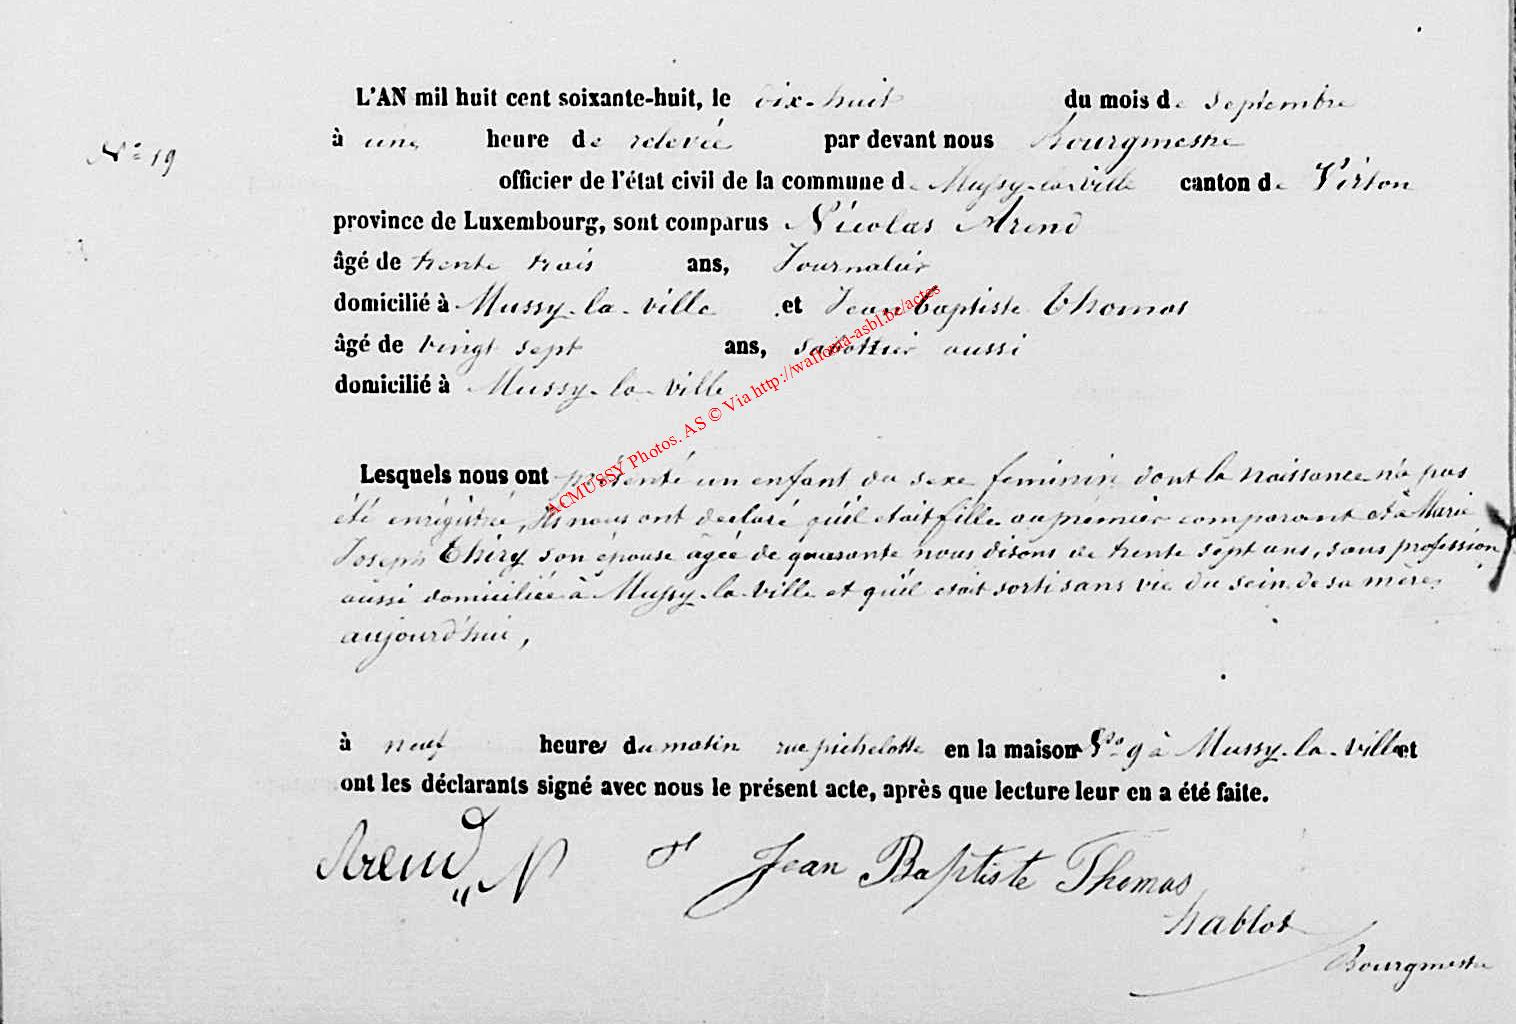 L'AN mil huit cent soixante-huit, le dix-huit du mois de Septembre
à une heure de relevée par devant nous bourgmestre
N° 19
officier de l'état civil de la commune de Mussy-la-ville canton de Virton
province de Luxembourg, sont comparus Nicolas Arend
âgé de trente trois ans, Journalier
domicilié à Mussy-la-ville et Jean baptiste Thomas
âgé de vingt sept ans, sabottier aussi
domicilié à Mussy-la-ville
ACMUSSY Photos. AS © Via http://wallonia-asbl.be/actes
Lesquels nous ont présenté un enfant du sexe feminin dont la naissance n'a pas
été enrégistré, ils nous ont declaré qu'il etait fille au prémier comparant et à Marie
Joseph Thiry son épouse âgée de quarante nous disons de trente sept ans, sans profession
aussi domiciliée à Mussy-la-ville et qu'il etait sorti sans vie du sein de sa mère
aujourd'hui,
à neuf heures du matin rue pichelotte en la maison N° 9 à Mussy-la-ville et
ont les déclarants signé avec nous le présent acte, après que lecture leur en a été faite.
Arend N Jean Baptiste Thomas
hablot
Bourgmestre